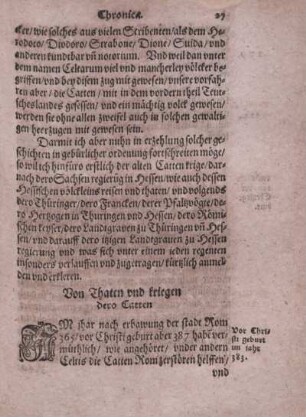 Chronica. 27
ker/ wie solches aus vielen Scribenten/ als dem He-
rodoro/ Diodoro/ Strabone/ Dione/ Suida/ vnd
anderen kundtbar vñ notorium. Vnd weil dan vnter
dem namen Celtarum viel vnd mancherley völcker be-
griffen/ vnd bey diesem zug mit gewesen/ vnsere vorfah-
ren aber/ die Catten/ mit in dem vordern theil Teu-
scheslandes gesessen/ vnd ein mächtig volck gewesen/
werden sie ohne allen zweifel auch in solchen gewalti-
gen heerzügen mit gewesen sein.
Darmit ich aber nuhn in erzehlung solcher ge-
schichten in gebürlicher ordenung fortschreiten möge/
so wil ich hinfüro erstlich der alten Catten krige/ dar-
nach dero Sachsen regierung in Hessen/ wie auch dessen
Hessischen völckleins reisen vnd thaten/ vnd volgends
dero Thüringer/ dero Francken/ derer Pfaltzvögte/ da-
ro Hertzogen in Thuringen vnd Hessen/ dero Römi-
schen keyser/ dero Landgrauen zu Thüringen vñ Hes-
sen/ vnd darauff dero itzigen Landtgrauen zu Hessen
regierung vnd was sich vnter einem jeden regenten
insonders verlauffen vnd zugetragen/ kürtzlich anmel-
den vnd erkleren.
Von Thaten vnd kriegen
dero Catten
IM jhar nach erbawung der stadt Rom
365/ vor Christi geburt aber 387 habẽ ver-
muthlich/ wie angehöret/ vnder andern
Celtis die Catten Rom zerstören helffen/
vnd
Vor Chri-
sti geburt
im jahr
383.